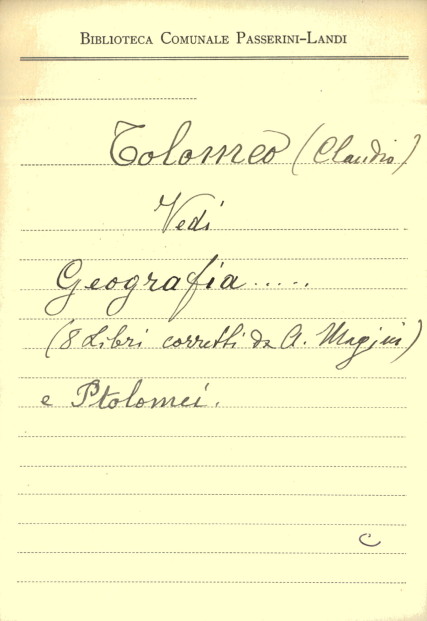 BIBLIOTECA COMUNALE PASSERINI-LANDI
Tolomeo (Claudio)
Vedi
Geografia.....
(8 Libri corretti da A. Magini)
e Ptolomei.
C